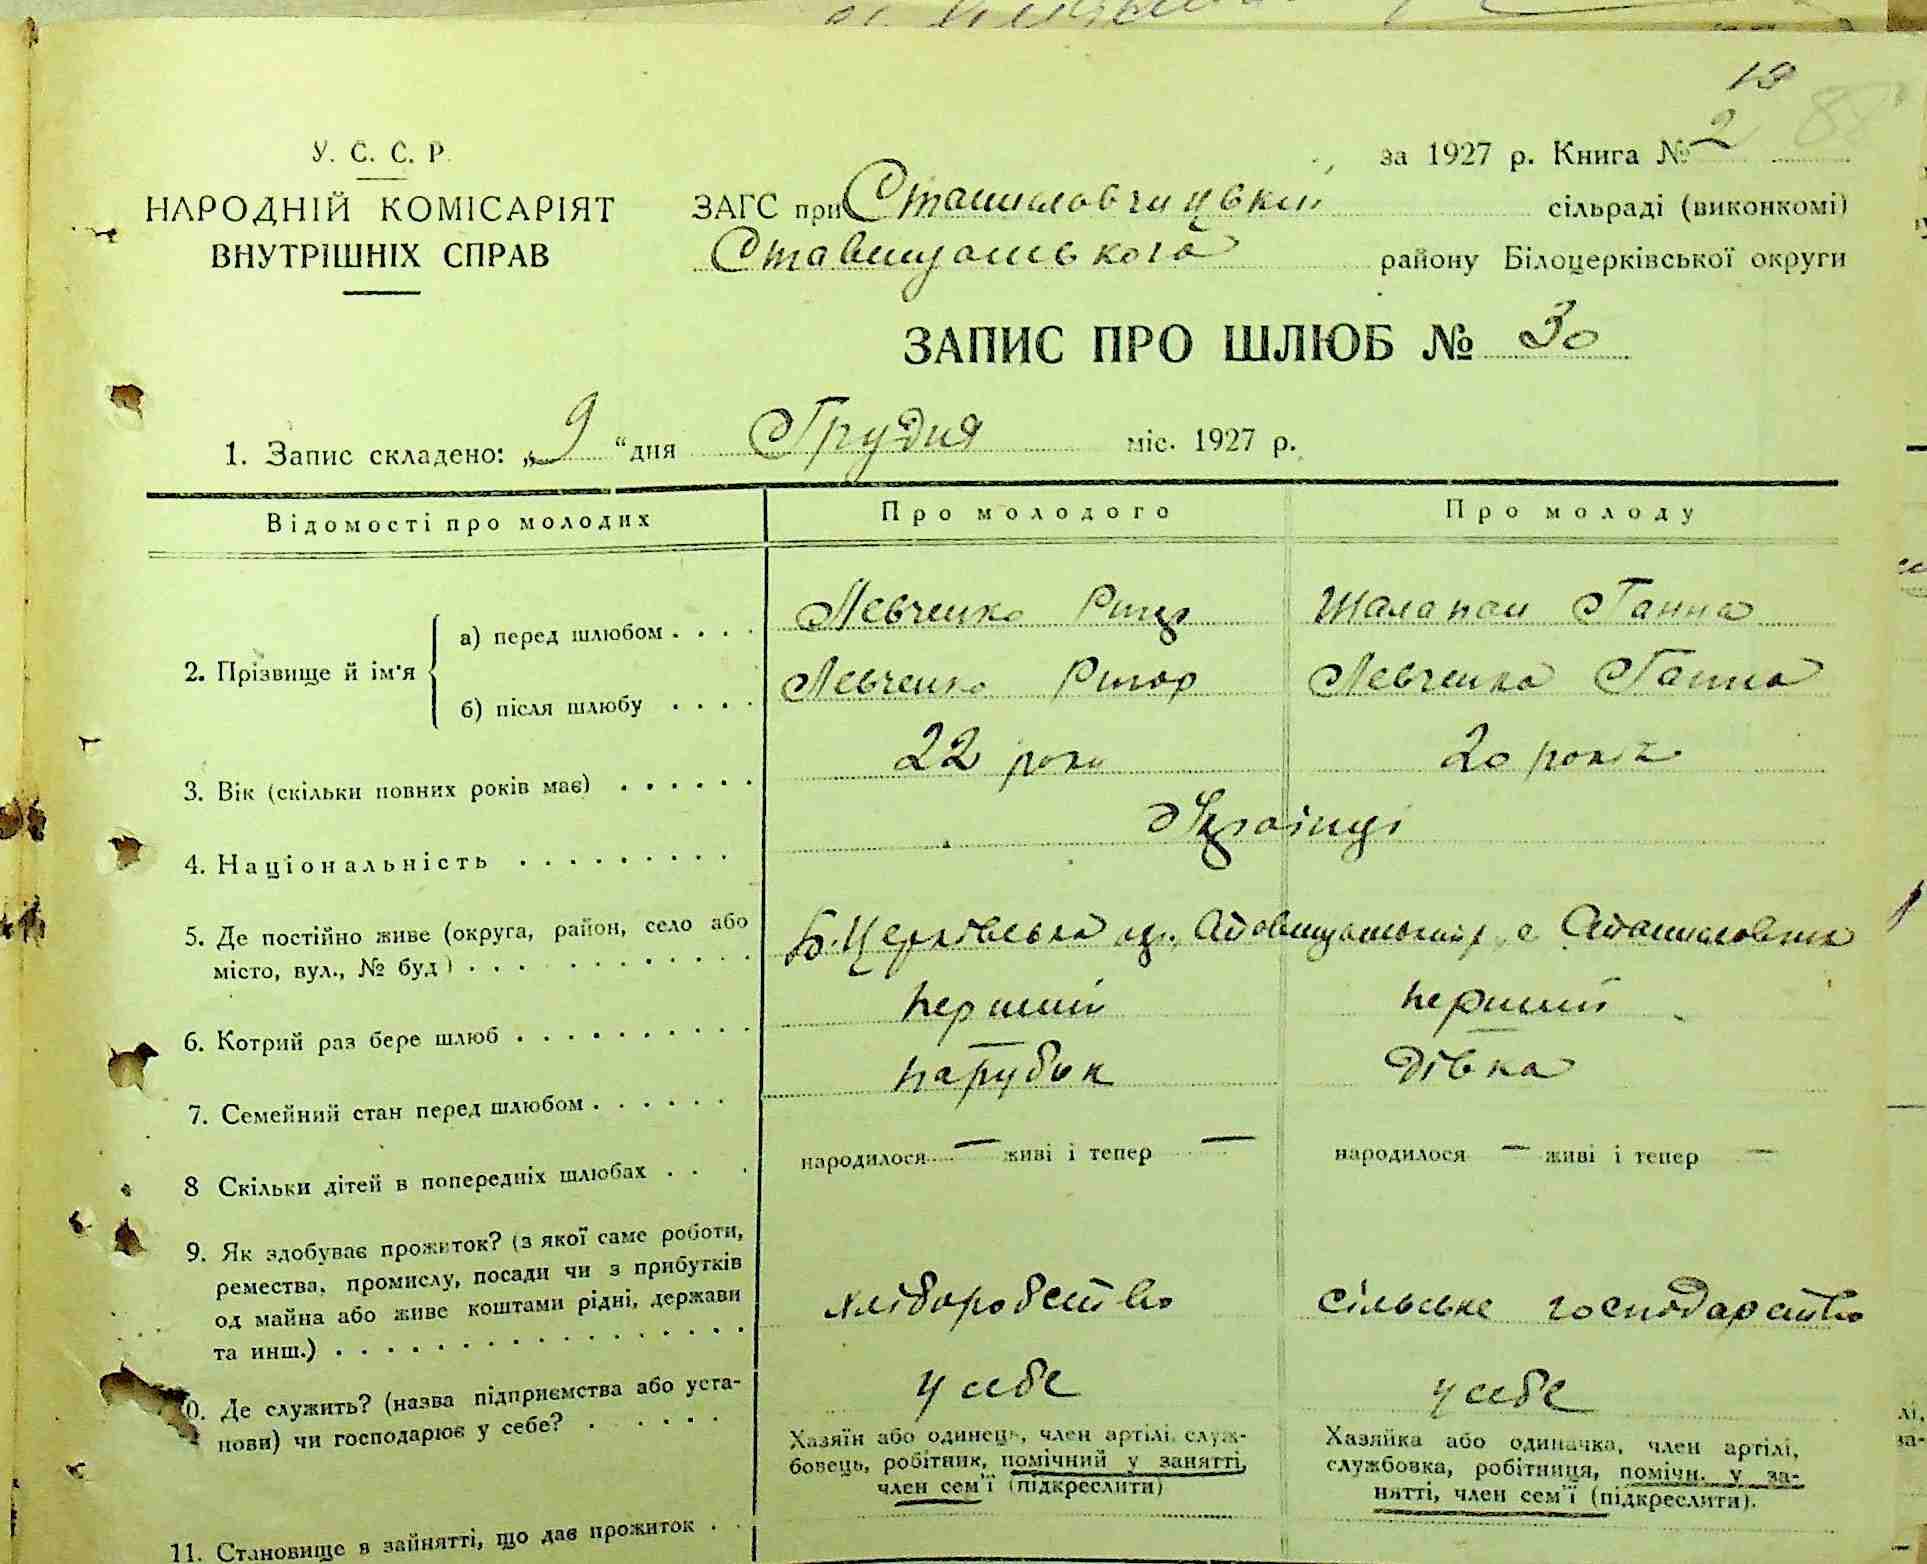 19
88
за 1927 р. Книга № 2
У. С. С. Р.
НАРОДНІЙ КОМІСАРІЯТ
ВНУТРІШНІХ СПРАВ
ЗАГС при Станиславчицькій сільраді (виконкомі)
Ставищанського району Білоцерківської округи
ЗАПИС ПРО ШЛЮБ № 30
1. Запис складено: „9“ дня Грудня міс. 1927 р.
Відомості про молодих Про молодого Про молоду
2. Прізвище й ім'я
а) перед шлюбом . . . . Левченко Шалапай Ганна
б) після шлюбу . . . . Левченко Левченко Ганна
3. Вік (скільки повних років має) . . . . . . 22 роки 20 років
4. Національність . . . . . . . . . Українці
5. Де постійно живе (округа, район, село або
місто, вул., № буд) . . . . . . . . . . . Б. Церківська ок., Ставищанський р, с Станиславчик
6. Котрий раз бере шлюб . . . . . . . . . перший перший
7. Семейний стан перед шлюбом . . . . . . парубок дівка
8 Скільки дітей в попередніх шлюбах . . . народилося — живі і тепер — народилося — живі і тепер —
9. Як здобуває прожиток? (з якої саме роботи,
ремества, промислу, посади чи з прибутків
од майна або живе коштами рідні, держави
та инш.) . . . . . . . . . . . . . . . хліборобство сільське господарство
0. Де служить? (назва підприємства або уста-
нови) чи господарює у себе? . . . . . . у себе у себе
Хазяїн або одинець, член артілі, служ-
бовець, робітник, помічний у занятті,
член сем'ї (підкреслити)
Хазяйка або одиначка, член артілі,
службовка, робітниця, помічн. у за-
нятті, член сем'ї (підкреслити).
11. Становище в зайнятті, що дає прожиток . .